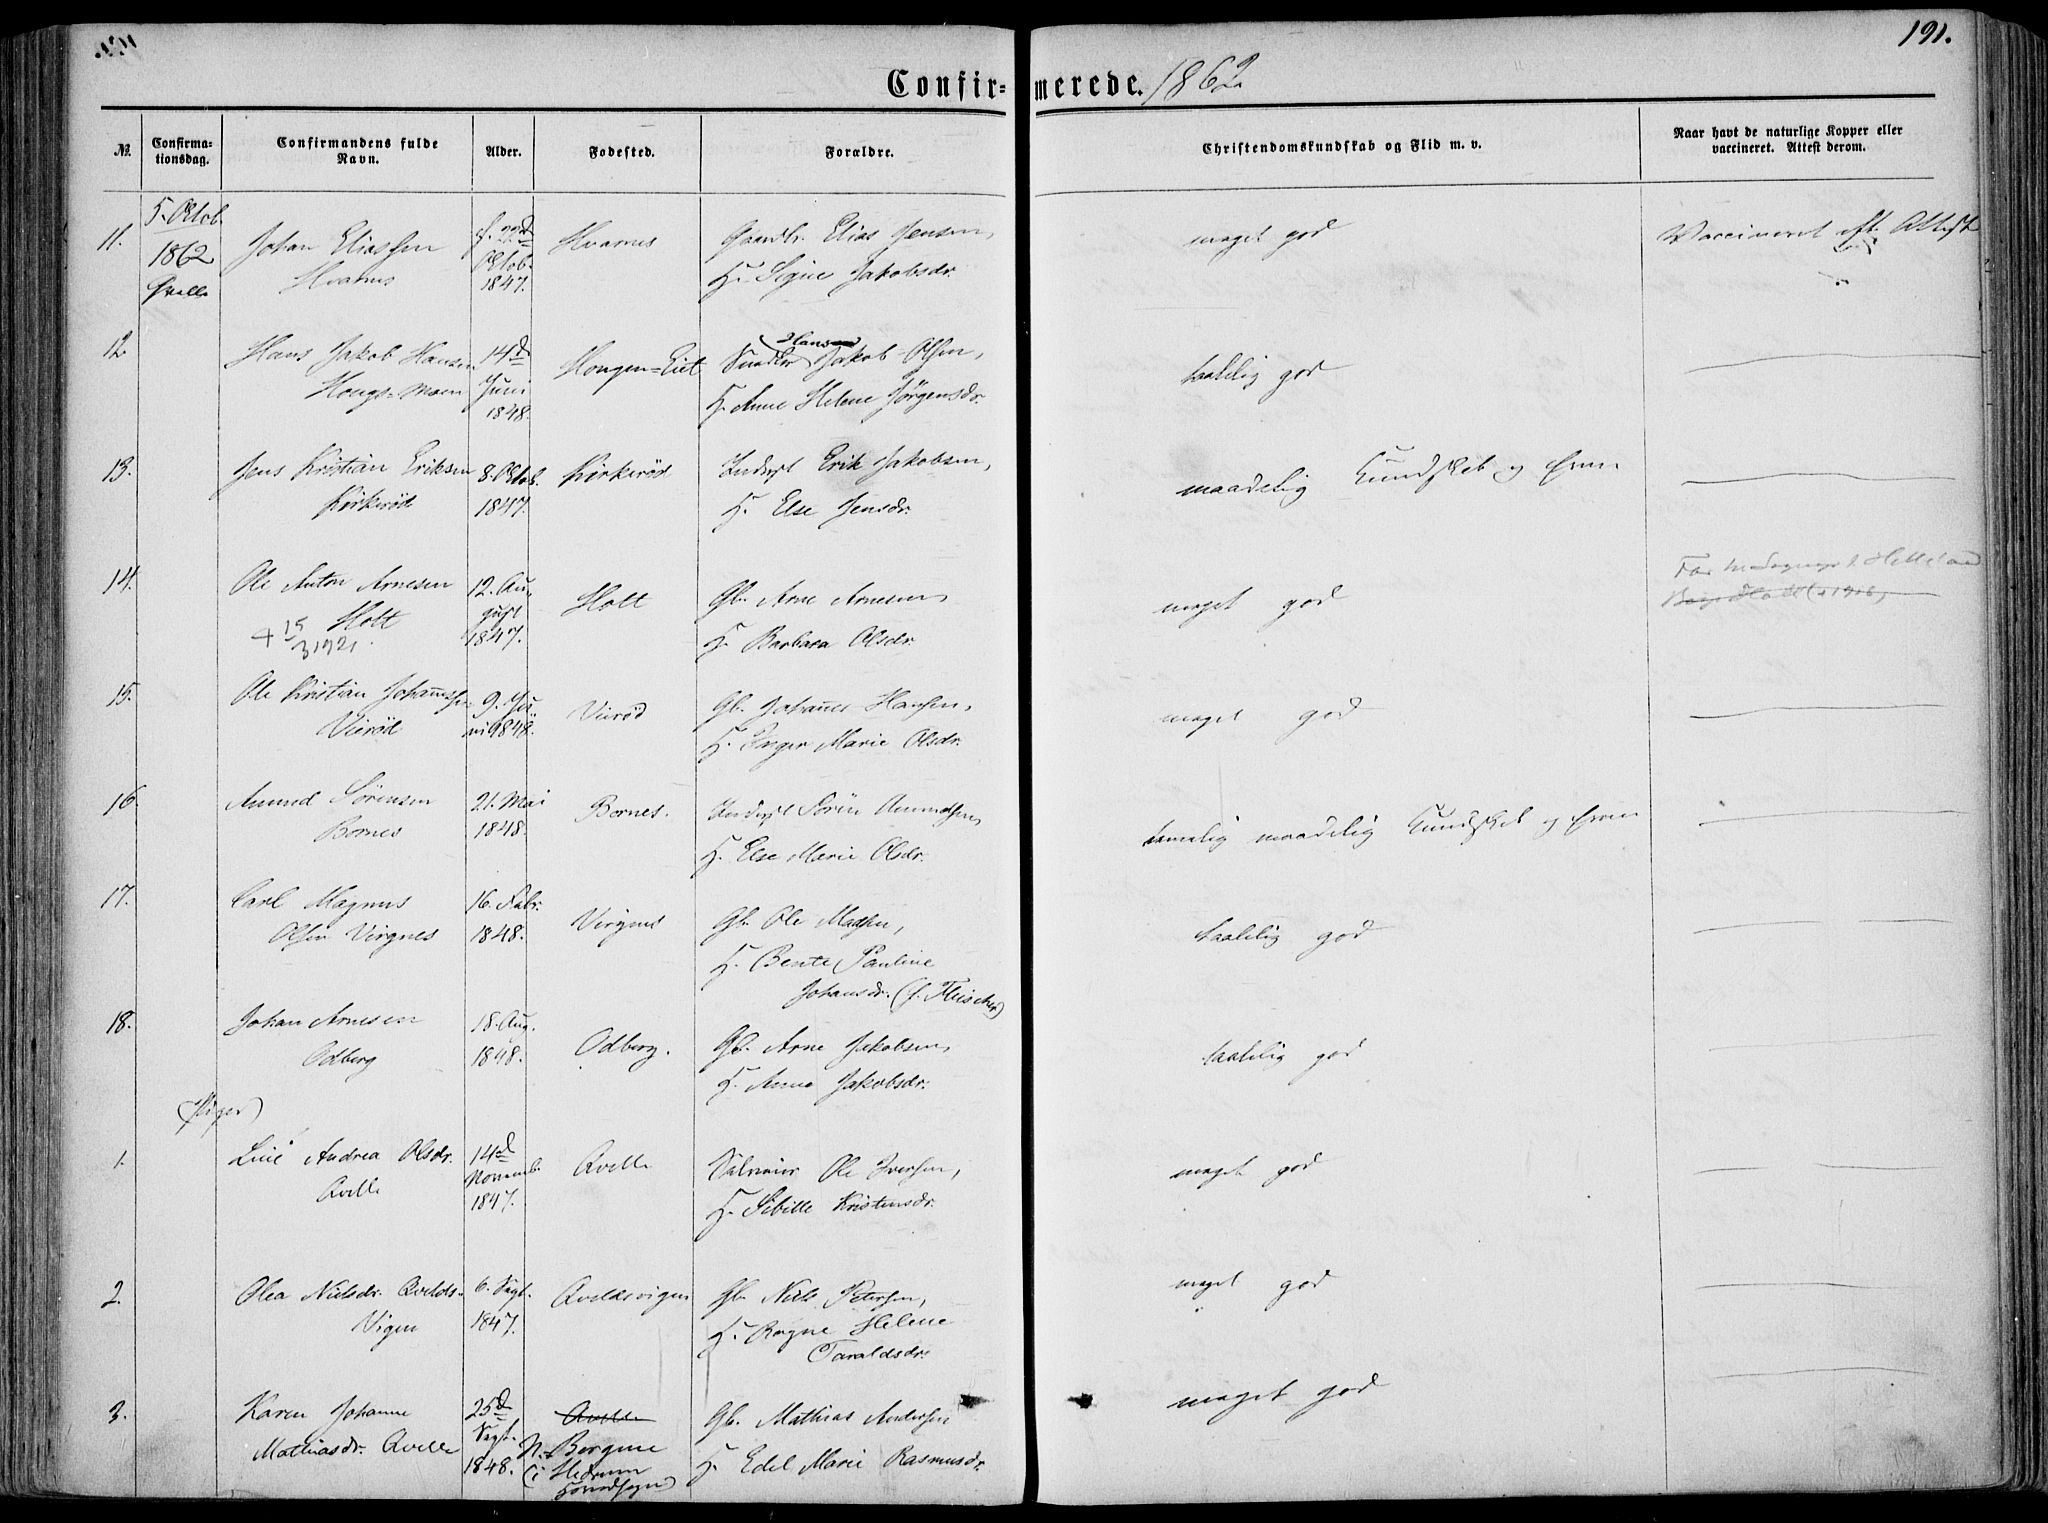 191.
Confir- merede. 1862
№ Confirma-tionsdag. Confirmandens fulde Navn. Alder. Fødested. Forældre. Christendomskundskab og Flid m. v. Naar havt de naturlige Kopper eller vaccineret. Attest derom.
5. Oktob.
1862
Qvelle
11. Johan Eliassen f. 22d Hvarnes Gaardbr. Elias Jensen, meget god Vaccineret eft. Attest
Hvarnes Oktob. H. Signe Jakobsdr.
1847.
12. Hans Jakob Hansen 14d Hougen-Eiet Hans Jakob Olsen, taalelig god
Hougs-Moen Juni H. Anne Helene Jörgensdr.
1848.
13. Jens Kristian Eriksen 8. Oktob. Kirkeröd Inderst Erik Jakobsen, maadelig Kundskab og Evne
Kirkeröd 1847. H. Else Jensdr.
14. Ole Anton Arnesen 12. Au- Holt Gb. Arne Arnesen, meget god
Holt gust H. Barbara Olsdr.
+ 15/3 1921. 1847.
15. Ole Kristian Johannessen 9. Ju- Vieröd Gb. Johannes Hansen, meget god
Vieröd ni 1848. H. Inger Marie Olsdr.
16. Amund Sörensen 21. Mai Bornes. Inderst Sörin Amundsen, temmelig maadelig Kundskab og Evne
Bornes 1848. H. Else Marie Olsdr.
17. Carl Magnus 16. Febr. Virgnes Gb. Ole Madsen, taalelig god
Olsen Virgnes 1848. H. Bente Pauline
Johansdr. (f. Fleischer)
18. Johan Arnesen 18. Aug. Odberg. Gb. Arne Jakobsen, taalelig god
Odberg 1848. H. Anne Jakobsdr.
(Piger)
1. Line Andrea Olsdr. 14d Qvelle Ole Iversen, meget god
Qvelle Novemb. H. Sibille Kristensdr.
1847.
2. Olea Nielsdr. Qvelds- 6. Sept. Qveldsvigen Gb. Niels Petersen, meget god
Vigen 1847. H. Ragne Helene
Taraldsdr.
3. Karen Johanne 25d Qvelle Gb. Mathias Andersen meget god
Mathiasdr. Qvelle Sept. N. Bergene H. Edel Marie Rasmusdr.
1848. (i Hedrum
Hovedsogn)